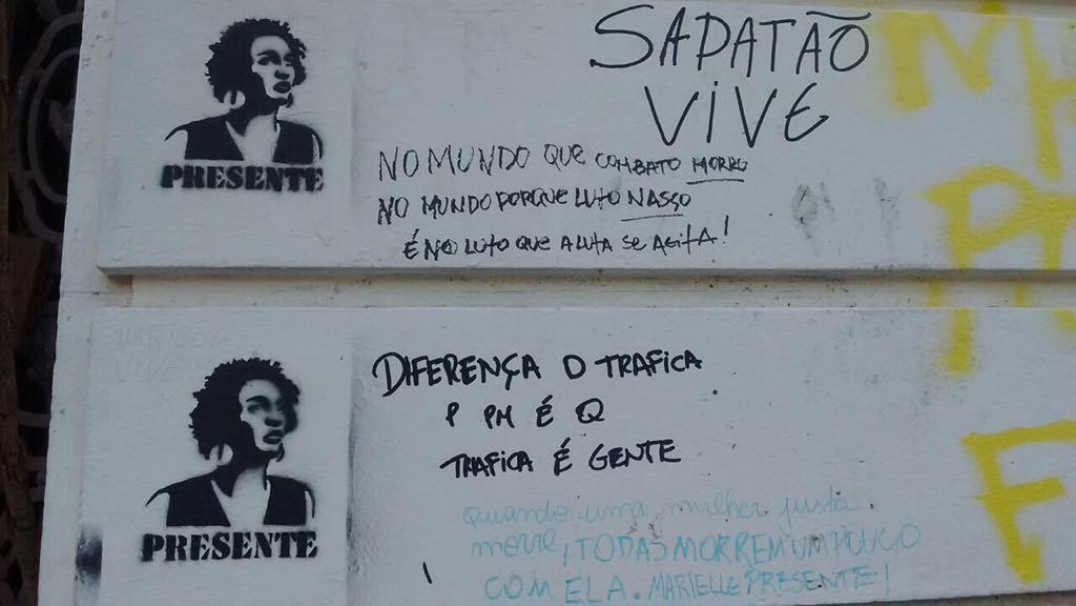 SAPATÃO
VIVE
PRESENTE
NO MUNDO QUE COMBATO MORRO
NO MUNDO PORQUE LUTO NASÇO
É NO LUTO QUE A LUTA SE AGITA!
DIFERENÇA D TRAFICA
P PM É Q
TRAFICA É GENTE
PRESENTE
quando uma mulher justa
morre, TODAS MORREM UM POUCO
COM ELA. MARIELLE PRESENTE!
F